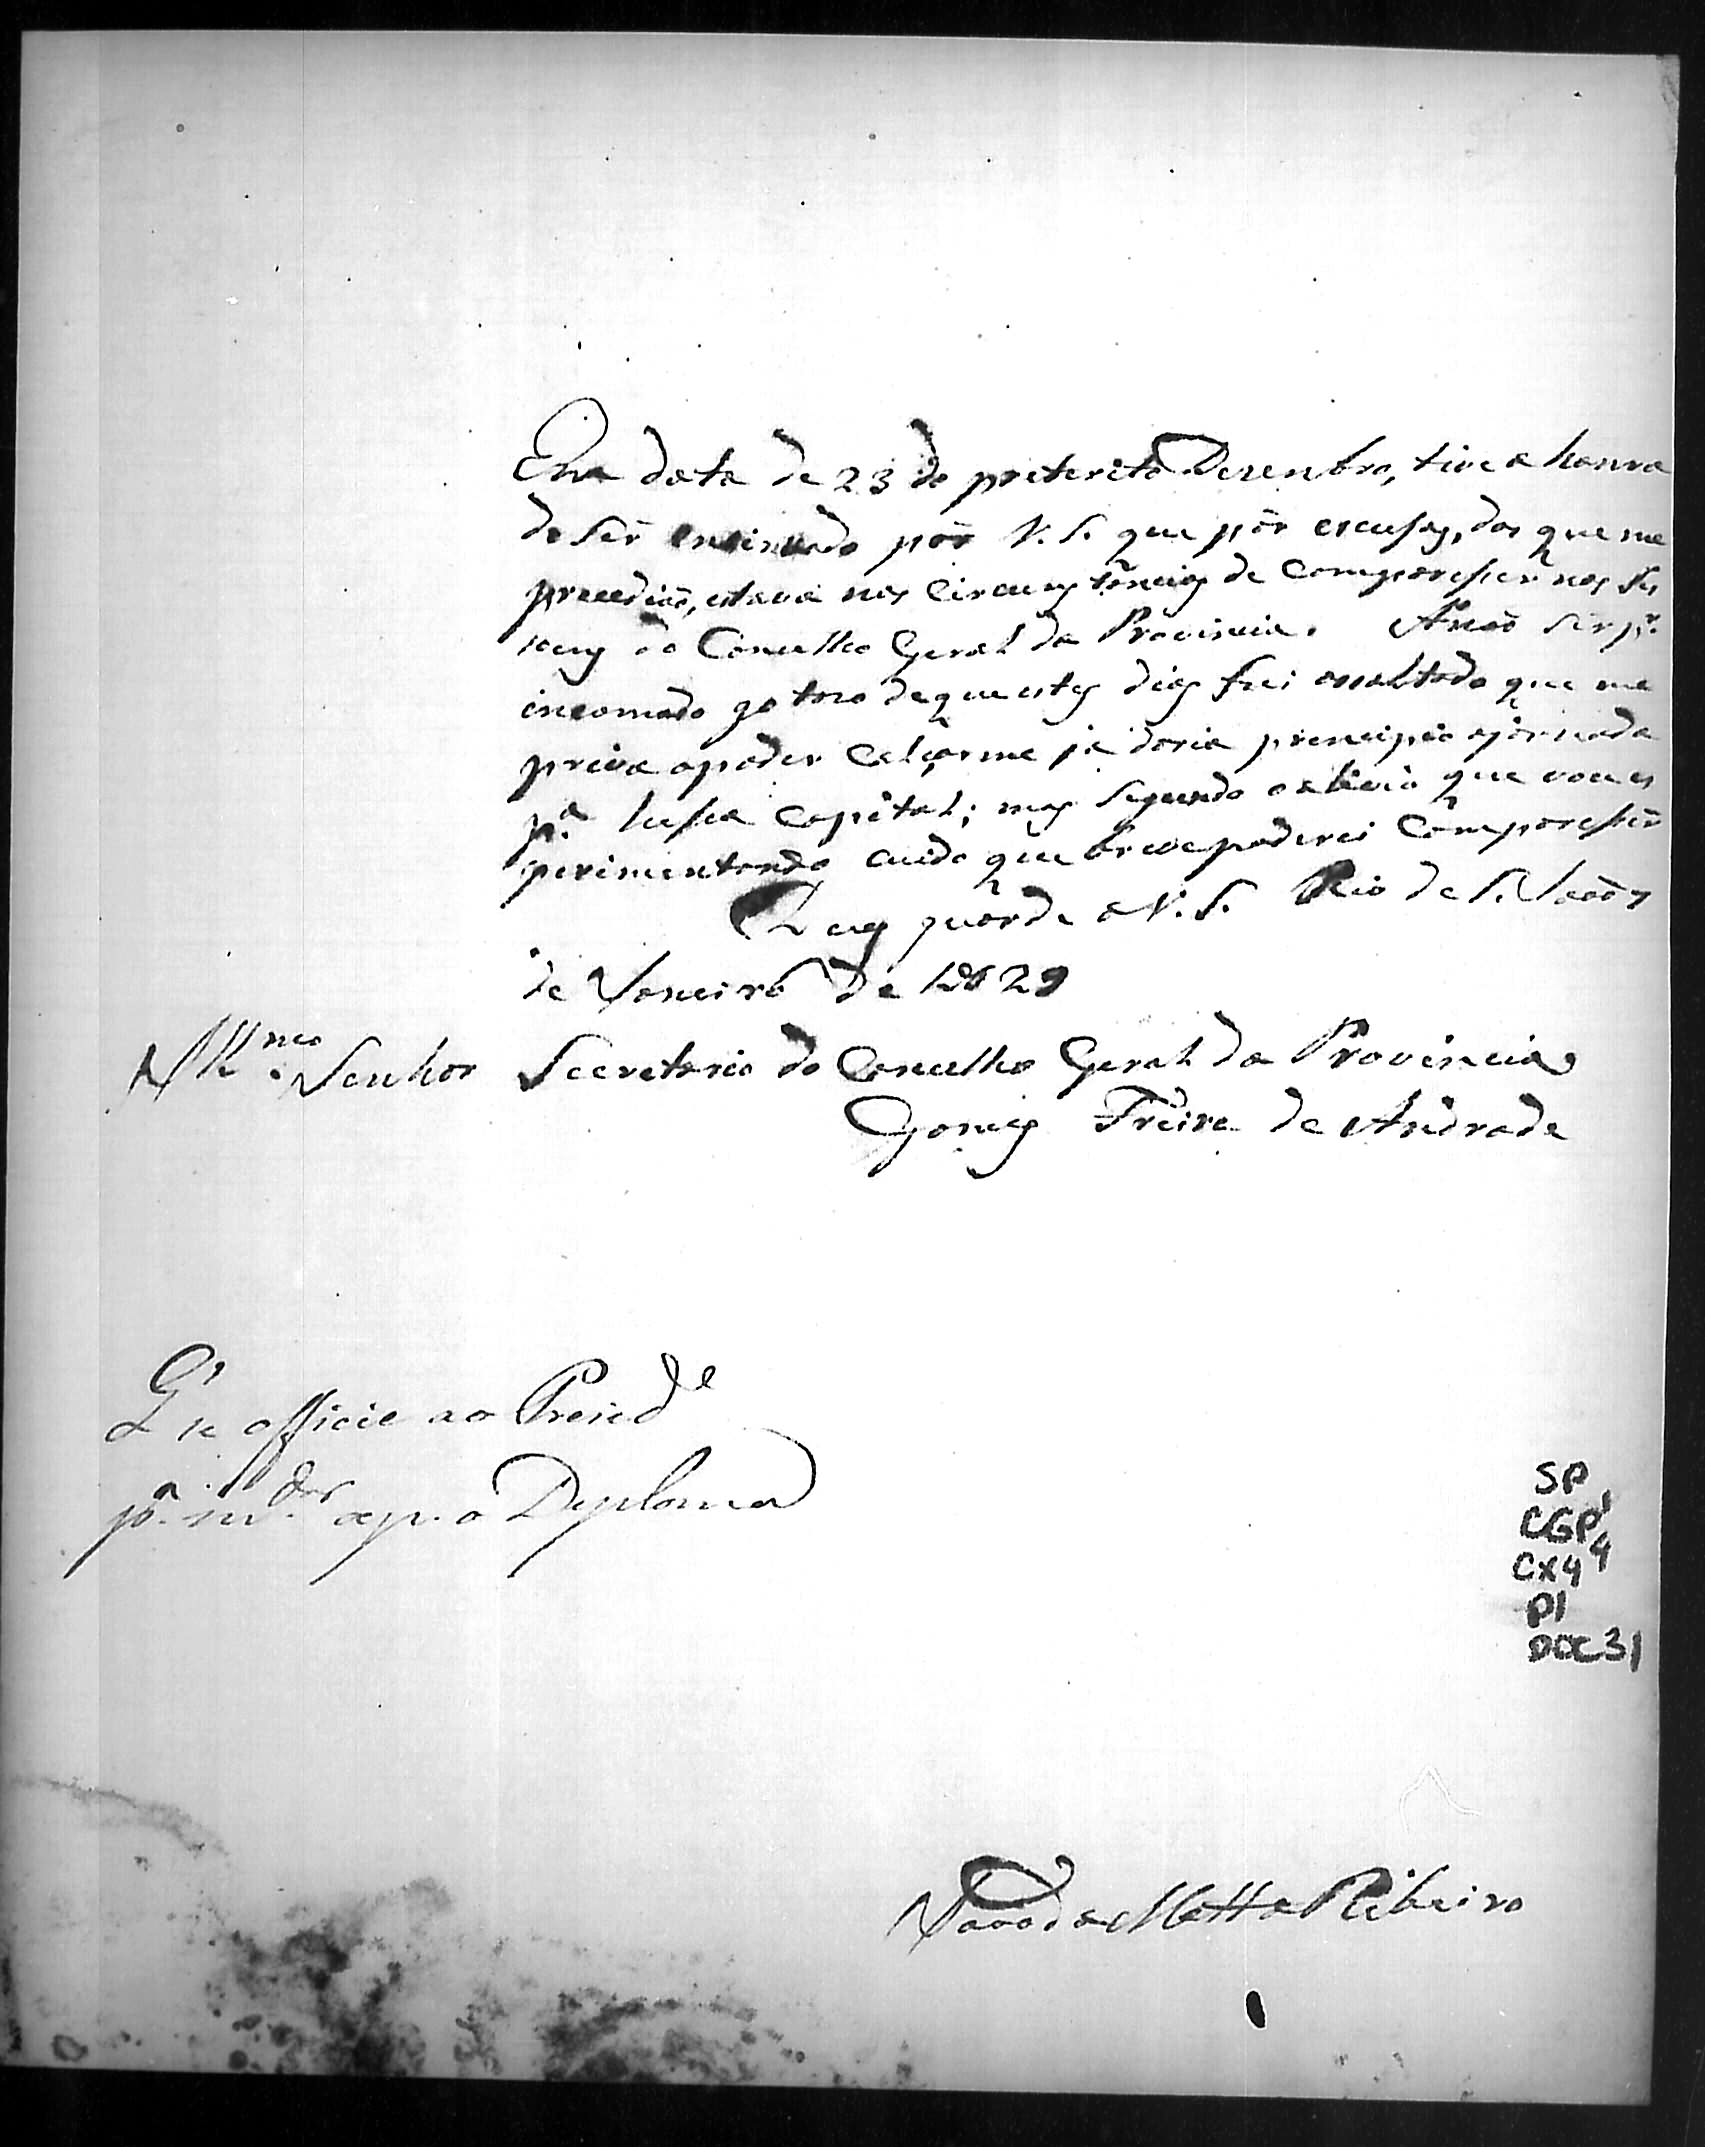 Em data de 23 do preterito Dezembro, tive a honra
de Ser ensinuado pôr V. S. que pôr escusas, dos que me
precedião, estava nas Circunstâncias de Comparesser nas Ses
soens do Concelho Geral da Provincia. Anaõ Ser p.r
incomodo gotozo de que estes dias fui assaltado que me
priva apoder Calçarme ja daria principio ajornada
p.a hessa Capital; mas Segundo o alivio que vou es
perimentando cuido que breve poderei Comparesser
Deus guarde a V. S. Rio de S. Joaõ 7
de Janeiro de 1829
Illmo. Senhor Secretario do Concelho Geral da Provincia
Gomes Freire de Andrade
Q' se officie ao Presid.e
p.a m.dar o Diploma
SP
CGP1
Cx 4
P1
DOC 31
João da Motta Ribeiro